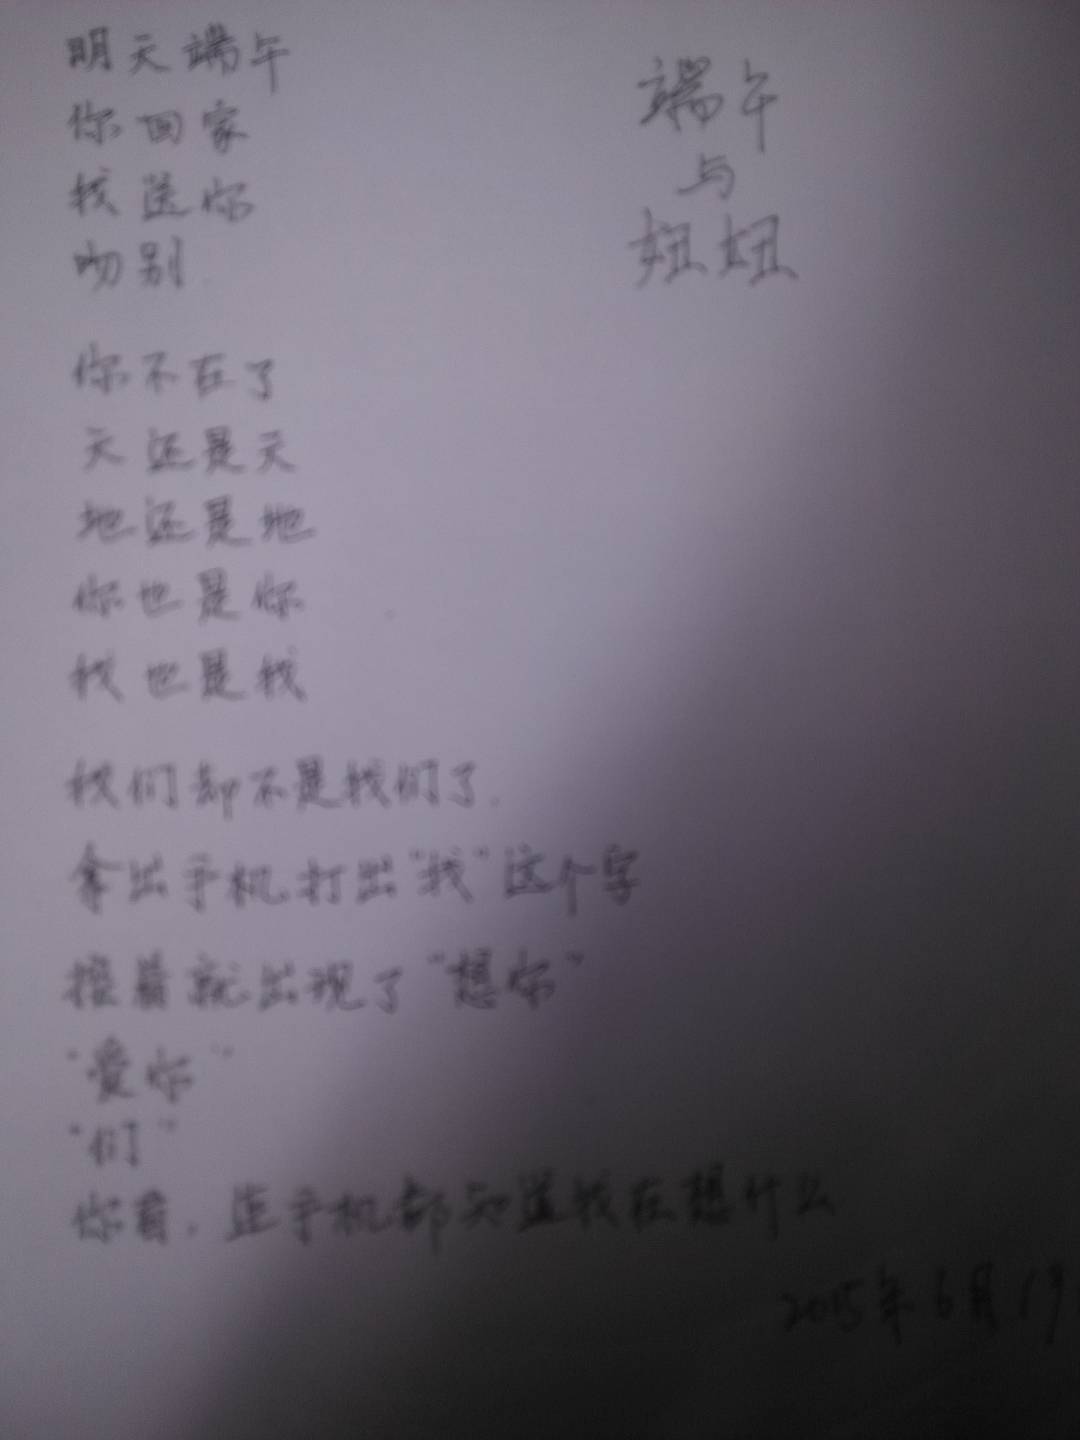 端午
与
妞妞
明天端午
你回家
我送你
吻别
你不在了
天还是天
地还是地
你也是你
我也是我
我们却不是我们了.
拿出手机打出“我”这个字
接着就出现了“想你”
“爱你”
“们”
你看,连手机都知道我在想什么
2015年6月19